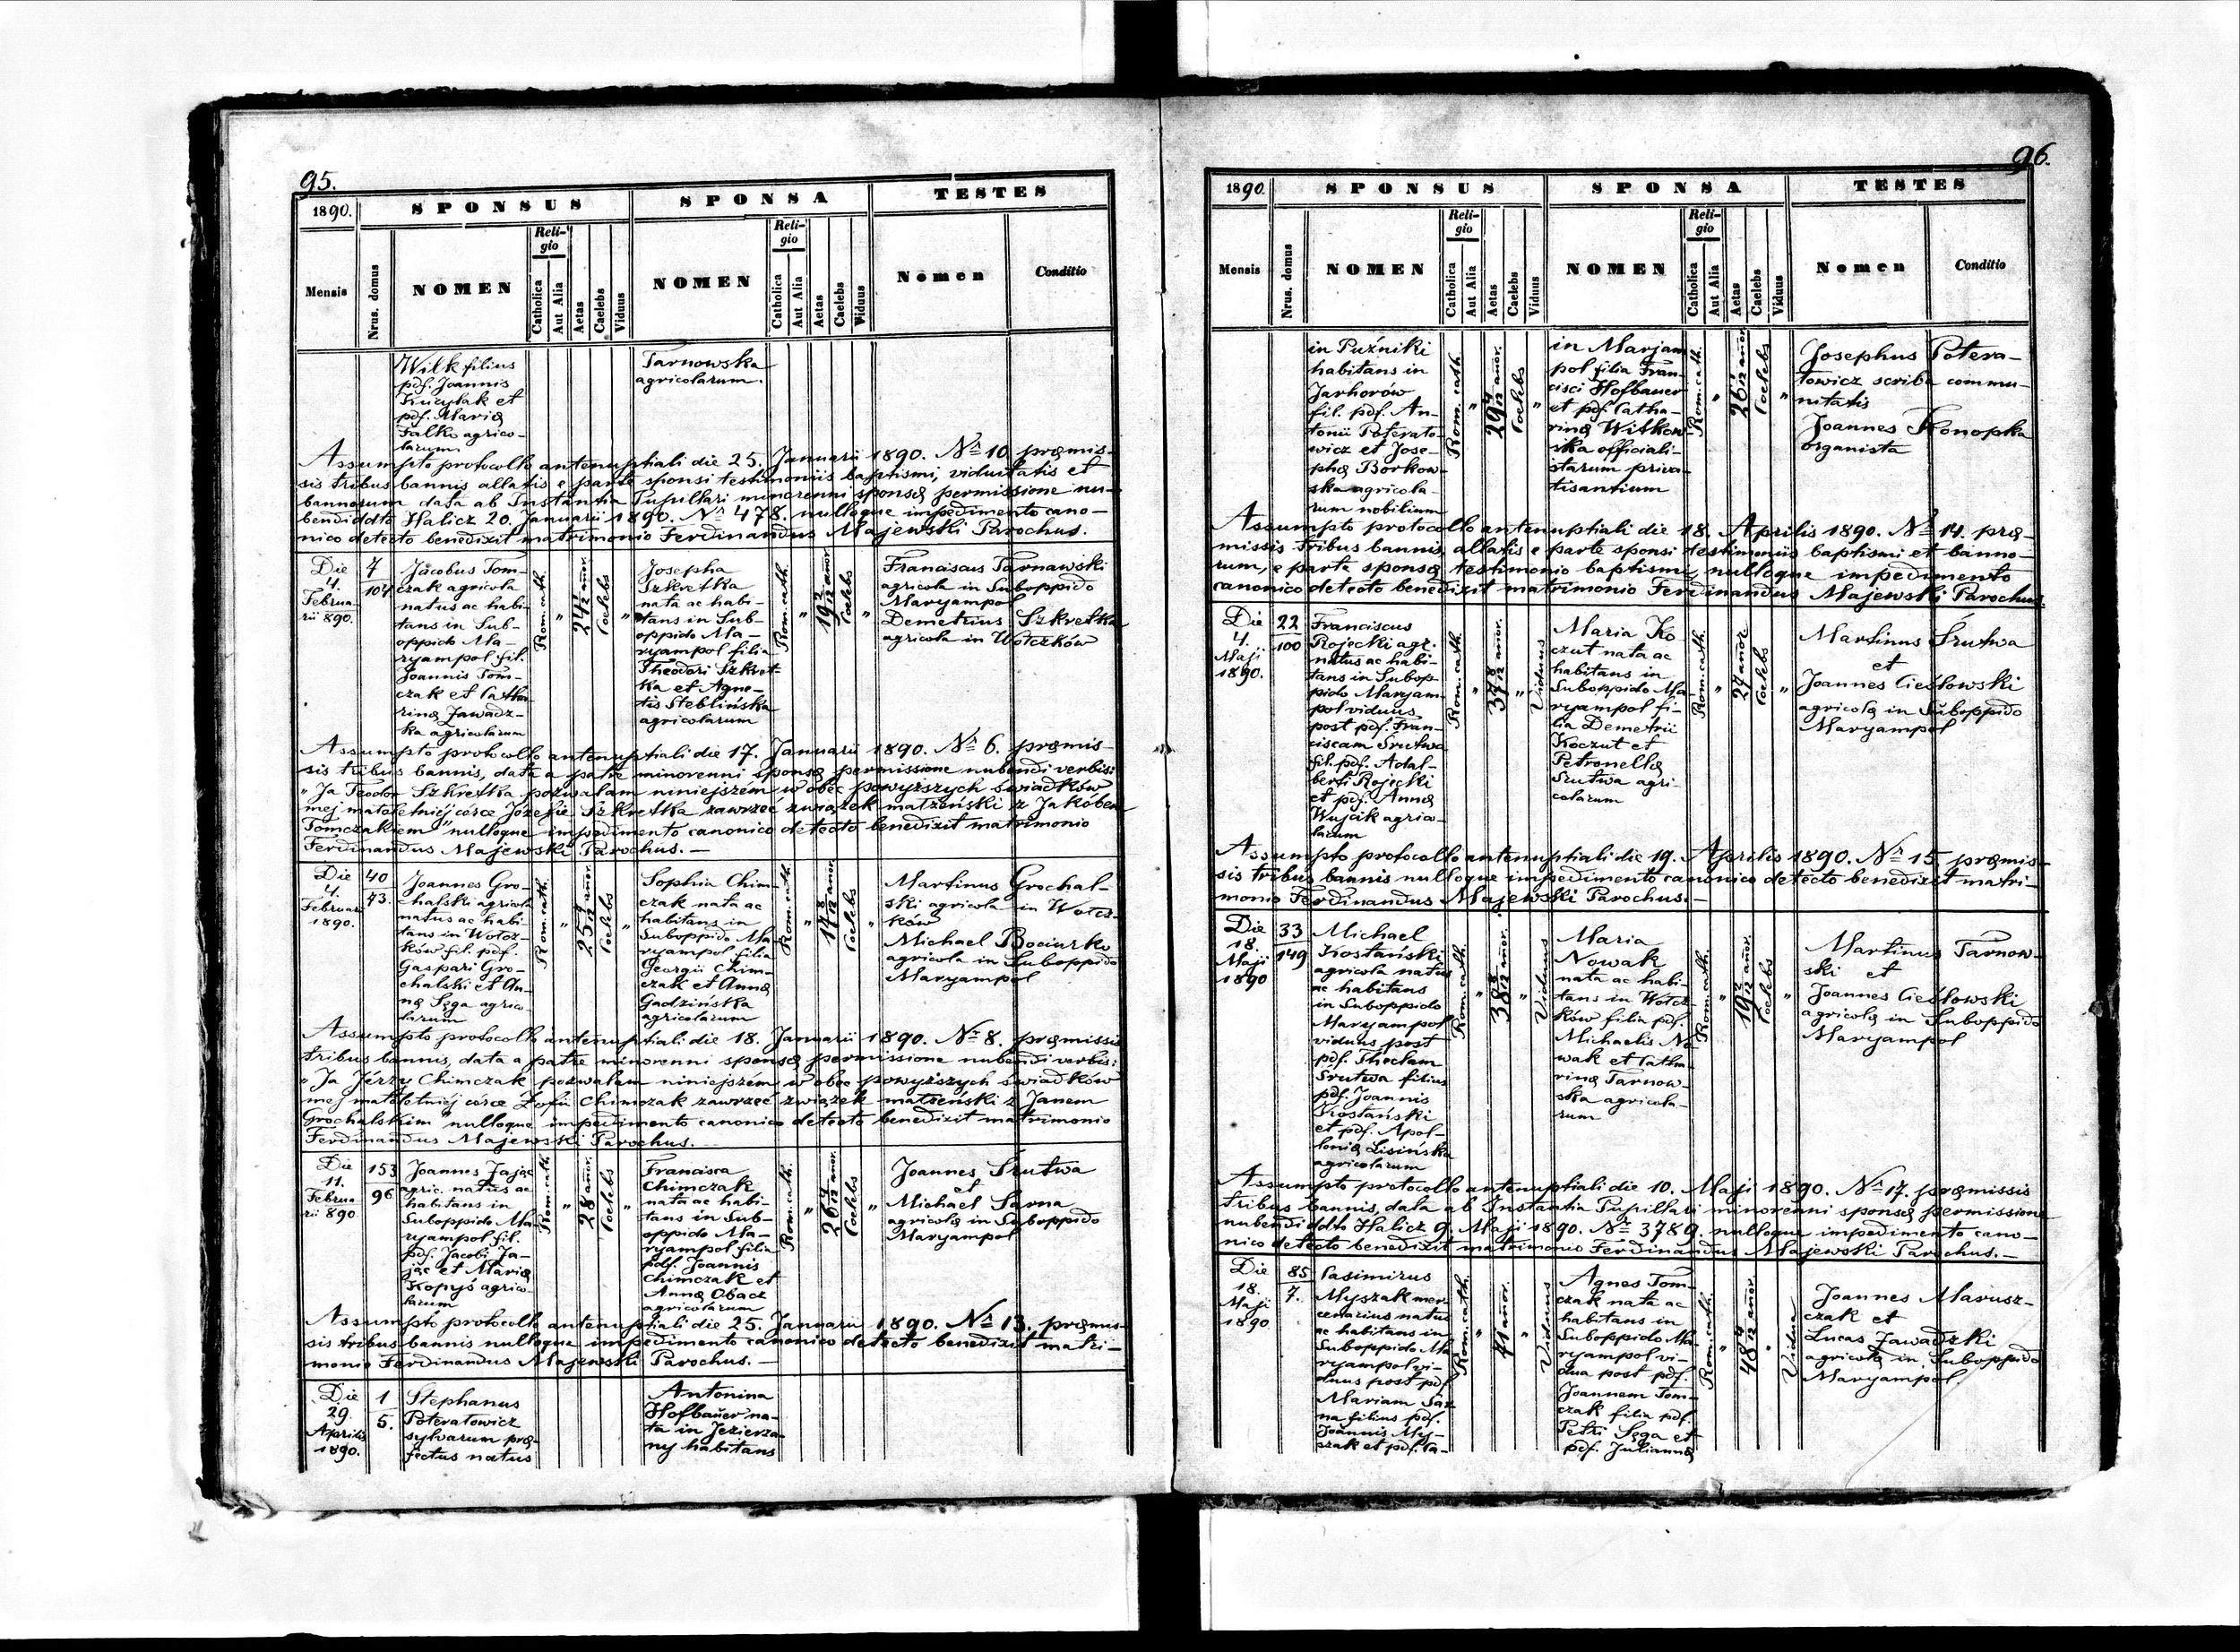 95.
1890.
SPONSUS
SPONSA
TESTES
Mensis
Nrus. domus
NOMEN
Religio
Catholica
Aut Alia
Aetas
Caelebs
Viduus
NOMEN
Religio
Catholica
Aut Alia
Aetas
Caelebs
Viduus
Nomen
Conditio
Wilk filius
pdf. Joannis
et
pdf. Mariæ
Falko agrico-
larum
Tarnowska
agricolarum.
Assumpto protocollo antenuptiali die 25. Januarii 1890. Nr 10. præmis-
sis tribus bannis allatis e parte sponsi testimoniis baptismi, viduitatis et
bannorum data ab Instantia Pupillari minorenni sponsæ permissione nu-
bendi ddto Halicz 20. Januarii 1890. Nr 478. nulloque impedimento cano-
nico detecto benedixit matrimonio Ferdinandus Majewski Parochus.
Die
4.
Februa-
rii 890.
7
104
Jacobus Tom-
czak agricola
natus ac habi-
tans in Sub-
oppido Ma-
ryampol fil.
Joannis Tom-
czak et Catha-
rinæ Zawadz-
ka agricolarum
Rom. cath.
"
24 annor.
Coelebs
"
Josepha
Szkretka
nata ac habi-
tans in Sub-
oppido Ma-
ryampol filia
Theodori Szkret-
ka et Agne-
tis Steblińska
agricolarum
Rom. cath.
"
19 annor.
Coelebs
"
Franciscus Tarnawski
agricola in Suboppido
Maryampol
Demetrius Szkretka
agricola in Wołczków
Assumpto protocollo antenuptiali die 17. Januarii 1890. Nr 6. præmis-
sis tribus bannis, data a patre minorenni sponsæ permissione nubendi verbis:
„Ja Teodor Szkretka pozwalam niniejszém w obec powyższych świadków
mej małoletniéj córce Józefie Szkretka zawrzeć związek małżeński z Jakóbem
Tomczakiem" nulloque impedimento canonico detecto benedixit matrimonio
Ferdinandus Majewski Parochus. —
Die
4.
Februar
1890.
40
73.
Joannes Gro-
chalski agricola
natus ac habi-
tans in Wołcz-
ków fil. pdf.
Gaspari Gro-
chalski et An-
næ Sęga agrico-
larum
Rom. cath.
"
25 annor.
Coelebs
"
Sophia Chim-
czak nata ac
habitans in
Suboppido Ma-
ryampol filia
Georgii Chim-
czak et Annæ
Gadzińska
agricolarum
Rom. cath.
"
17 annor.
Coelebs
"
Martinus Grochal-
ski agricola in Wołcz-
ków
Michael Bociurko
agricola in Suboppido
Maryampol
Assumpto protocollo antenuptiali die 18. Januarii 1890. Nr 8. præmissis
tribus bannis, data a patre minorenni sponsæ permissione nubendi verbis:
„Ja Jérzy Chimczak pozwalam niniejszém w obec powyższych świadków
mej małoletniej córce Zofii Chimczak zawrzeć związek małżeński z Janem
Grochalskim" nulloque impedimento canonico detecto benedixit matrimonio
Ferdinandus Majewski Parochus.
Die
11.
Februa-
rii 890
153
96
Joannes Zając
agric. natus ac
habitans in
Suboppido Ma-
ryampol fil.
pdf. Jacobi Za-
jąc et Mariæ
Kopyś agrico-
larum
Rom. cath
"
28 annor.
Coelebs
"
Francisca
Chimczak
nata ac habi-
tans in Sub-
oppido Ma-
ryampol filia
pdf. Joannis
Chimczak et
Annæ Obacz
agricolarum
Rom. cath.
"
26 annor.
Coelebs
"
Joannes Srutwa
et
Michael Sarna
agricolæ in Suboppido
Maryampol
Assumpto protocollo antenuptiali die 25. Januarii 1890. Nr 13. præmis-
sis tribus bannis nulloque impedimento canonico detecto benedixit matri-
monio Ferdinandus Majewski Parochus. —
Die
29.
Aprilis
1890.
1
5.
Stephanus
Poteratowicz
sylvarum præ-
fectus natus
Antonina
Hofbauer na-
ta in Jezierza-
ny habitans
96.
1890.
SPONSUS
SPONSA
TESTES
Mensis
Nrus. domus
NOMEN
Religio
Catholica
Aut Alia
Aetas
Caelebs
Viduus
NOMEN
Religio
Catholica
Aut Alia
Aetas
Caelebs
Viduus
Nomen
Conditio
in Puźniki
habitans in
Jarhorów
fil. pdf. An-
tonii Poterato-
wicz et Jose-
phæ Borkow-
ska agricola-
rum nobilium
Rom. cath.
"
29 annor.
Coelebs
"
in Marjam-
pol filia Fran-
cisci Hofbauer
et pdf. Catha-
rinæ Witkow-
ska officiali-
starum priva-
tisantium
Rom. cath.
"
26 annor
Coelebs
"
Josephus Potera-
towicz scriba commu-
nitatis
Joannes Konopka
organista
Assumpto protocollo antenuptiali die 18. Aprilis 1890. Nr 14. præ-
missis tribus bannis, allatis e parte sponsi testimoniis baptismi et banno-
rum, e parte sponsæ testimonio baptismi, nulloque impedimento
canonico detecto benedixit matrimonio Ferdinandus Majewski Parochus.
Die
4.
Maji
1890.
22
100
Franciscus
Rojecki agr.
natus ac habi-
tans in Subop-
pido Maryam-
pol viduus
post pdf. Fran-
ciscam Srutwa
fil. pdf. Adal-
berti Rojecki
et pdf. Annæ
Wujcik agrico-
larum
Rom. cath.
"
37 annor.
"
Viduus
Maria Ko
czut nata ac
habitans in
Suboppido Ma-
ryampol fi-
lia Demetrii
Koczut et
Petronellæ
Srutwa agri-
colarum
Rom. cath.
"
24 annor
Coelebs
"
Martinus Srutwa
et
Joannes Cieśłowski
agricolæ in Suboppido
Maryampol
Assumpto protocollo antenuptiali die 19. Aprilis 1890. Nr 15. præmis-
sis tribus bannis nulloque impedimento canonico detecto benedixit matri-
monio Ferdinandus Majewski Parochus.—
Die
18.
Maji
1890
33
149
Michael
Kostański
agricola natus
ac habitans
in Suboppido
Maryampol
viduus post
pdf. Theclam
Srutwa filius
pdf. Joannis
Kostański
et pdf. Apol-
loniæ Lisińska
agricolarum
Rom. cath.
"
38 annor.
"
Viduus
Maria
Nowak
nata ac habi-
tans in Wołcz-
ków filia pdf.
Michaelis No-
wak et Catha-
rinæ Tarnow-
ska agricola-
rum
Rom. cath.
"
19 annor.
Coelebs
"
Martinus Tarnow-
ski et
Joannes Cieśłowski
agricolæ in Suboppido
Maryampol
Assumpto protocollo antenuptiali die 10. Maji 1890. Nr 17. præmissis
tribus bannis, data ab Instantia Pupillari minorenni sponsæ permissione
nubendi ddto Halicz 9. Maji 1890. Nr 3789. nulloque impedimento cano-
nico detecto benedixit matrimonio Ferdinandus Majewski Parochus.—
Die
18.
Maji
1890
85
7.
Casimirus
Myszak mer-
cenarius natus
ac habitans in
Suboppido Ma-
ryampol vi-
duus post pdf.
Mariam Sar-
na filius pdf.
Joannis My-
szak et pdf. Ca-
Rom. cath.
"
41 annor.
"
Viduus
Agnes Tom-
czak nata ac
habitans in
Suboppido Ma-
ryampol vi-
dua post pdf.
Joannem Tom-
czak filia pdf.
Petri Sęga et
pdf. Juliannæ
Rom. cath.
"
48 annor.
"
Vidua
Joannes Marusz-
czak et
Lucas Zawadzki
agricolæ in Suboppido
Maryampol.